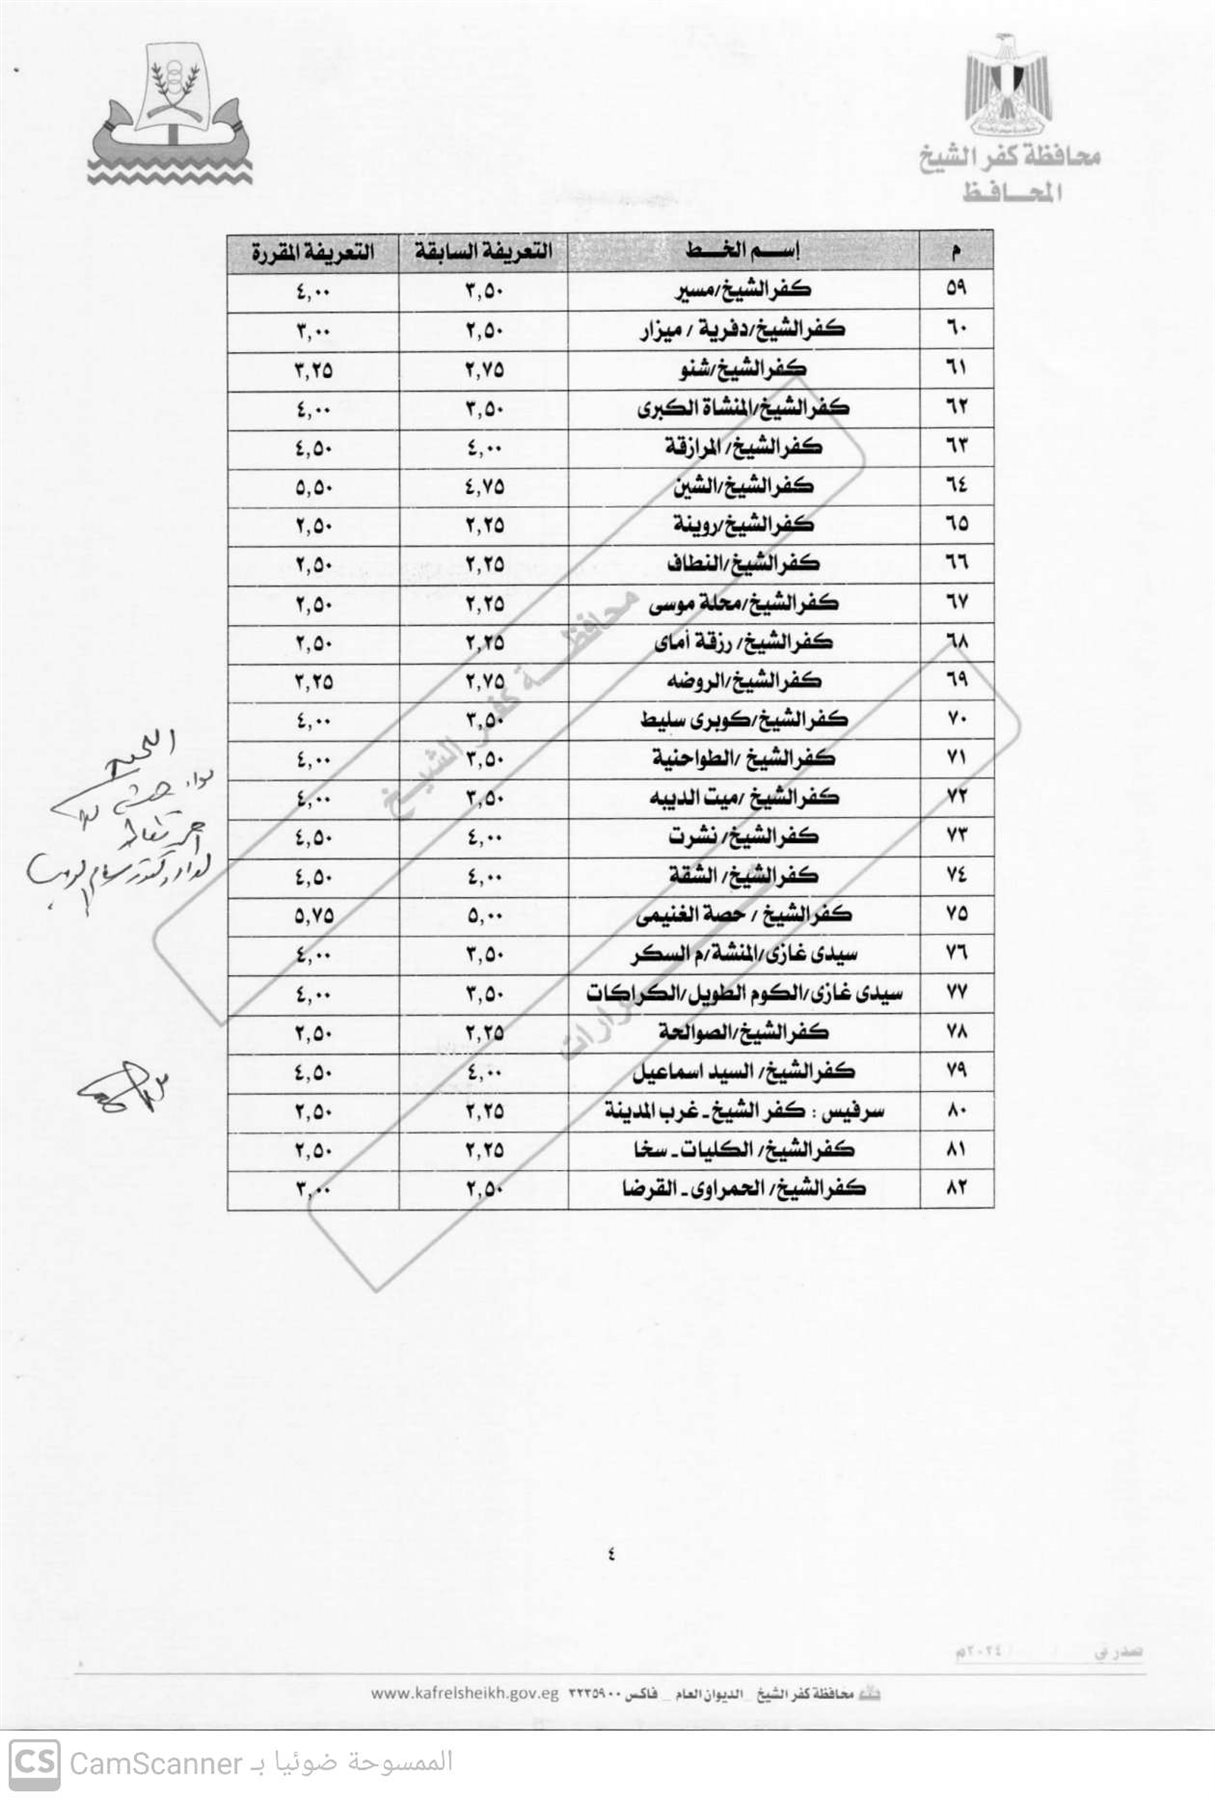 محافظة كفر الشيخ
المحافظ
م إسم الخط التعريفة السابقة التعريفة المقررة
٥٩ كفرالشيخ/مسير ٣,٥٠ ٤,٠٠
٦٠ كفرالشيخ/دفرية / ميزار ٢,٥٠ ٣,٠٠
٦١ كفرالشيخ/شنو ٢,٧٥ ٣,٢٥
٦٢ كفرالشيخ/المنشاة الكبرى ٣,٥٠ ٤,٠٠
٦٣ كفرالشيخ/ المرازقة ٤,٠٠ ٤,٥٠
٦٤ كفرالشيخ/الشين ٤,٧٥ ٥,٥٠
٦٥ كفرالشيخ/روينة ٢,٢٥ ٢,٥٠
٦٦ كفرالشيخ/النطاف ٢,٢٥ ٢,٥٠
٦٧ كفرالشيخ/محلة موسى ٢,٢٥ ٢,٥٠
٦٨ كفرالشيخ/ رزقة أماى ٢,٢٥ ٢,٥٠
٦٩ كفرالشيخ/الروضه ٢,٧٥ ٣,٢٥
٧٠ كفرالشيخ/كوبرى سليط ٣,٥٠ ٤,٠٠
٧١ كفرالشيخ /الطواحنية ٣,٥٠ ٤,٠٠
٧٢ كفرالشيخ /ميت الديبه ٣,٥٠ ٤,٠٠
٧٣ كفرالشيخ/ نشرت ٤,٠٠ ٤,٥٠
٧٤ كفرالشيخ/ الشقة ٤,٠٠ ٤,٥٠
٧٥ كفرالشيخ / حصة الغنيمى ٥,٠٠ ٥,٧٥
٧٦ سيدى غازى/المنشة/م السكر ٣,٥٠ ٤,٠٠
٧٧ سيدى غازى/الكوم الطويل/الكراكات ٣,٥٠ ٤,٠٠
٧٨ كفرالشيخ/الصوالحة ٢,٢٥ ٢,٥٠
٧٩ كفرالشيخ/ السيد اسماعيل ٤,٠٠ ٤,٥٠
٨٠ سرفيس : كفر الشيخ ـ غرب المدينة ٢,٢٥ ٢,٥٠
٨١ كفرالشيخ/ الكليات ـ سخا ٢,٢٥ ٢,٥٠
٨٢ كفرالشيخ/ الحمراوى ـ القرضا ٢,٥٠ ٣,٠٠
محافظة كفر الشيخ
٤
صدر في / / ٢٠٢٤م
محافظة كفر الشيخ _ الديوان العام _ فاكس ٣٢٣٥٩٠٠ www.kafrelsheikh.gov.eg
CS الممسوحة ضوئيا بـ CamScanner